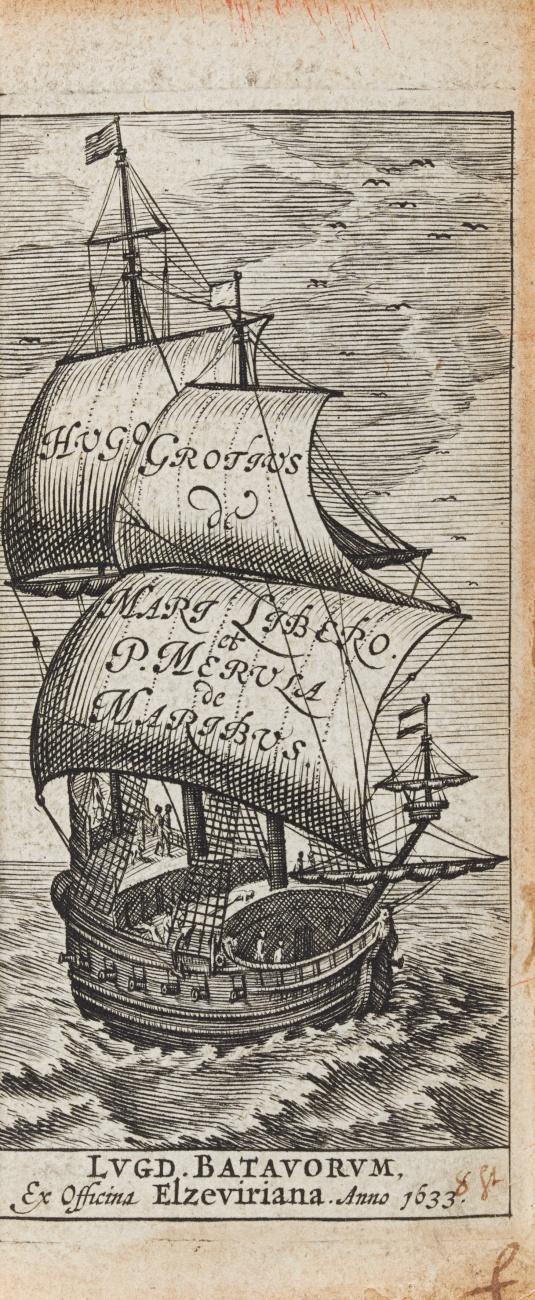 HVGO GROTIVS
de
MARI LIBERO.
et
P. MERVLA
de
MARIBVS
LVGD. BATAVORVM,
Ex Officina Elzeviriana. Anno 1633.